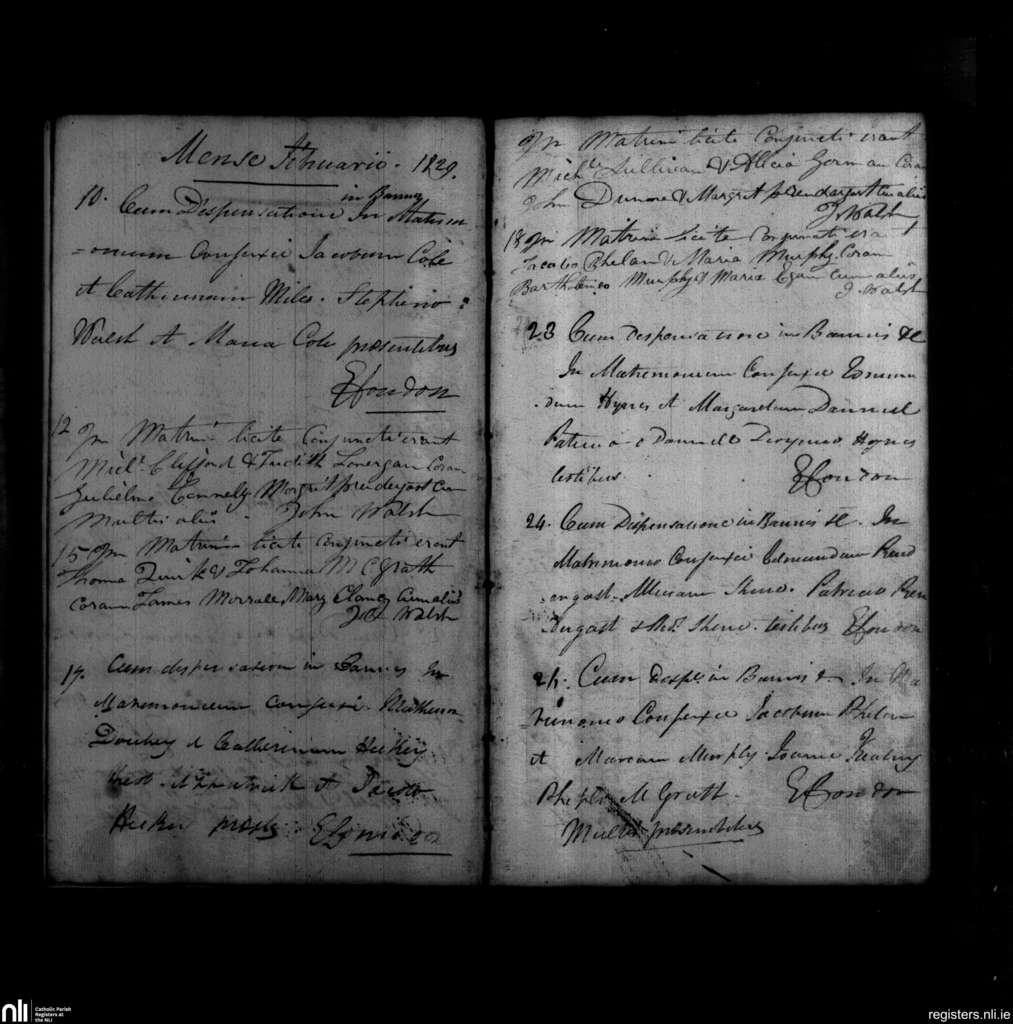 Mense Febuarii. 1829.
10. Cum Dispensatione in Bannis In Matrim
=onium Conjunxi Jacobum Cole
et Catherinam Miles. Stephino
Walsh et Maria Cole presentibus
E Condon
12 In Matrim licite Conjuncti erant
Michl. Clifford & Judith Lonergan Coram
Gulielmo Connelly Margrit prendergast Cum
Multis aliis. John Walsh
15 In Matrim licite Conjuncti erant
Thoma Quirk & Johanna McGrath
Coram James Morrall, Mary Clancy Cum aliis
Walsh
17. Cum dispensatione in Bannis In
Matrimonium Conjunxi
et Catherinam Hickey
et Jacobo
E Condon
In Matrim licite Conjuncti erant
Michl. Sullivan & Alicia Gorman Coram
John Dunne & Margret prendargast Cum aliis
J. Walsh
18 In Matrim licite Conjuncti erant
Jacobo Phelan & Maria Murphy. Coram
Bartholomeo Murphy & Maria Egan Cum aliis
J. Walsh
23 Cum dispensatione in Bannis &c
In Matrimonium Conjunxi Edmun
dum Hynes et Margaretam Danniel
Patricio Hynes
testibus. E Condon
24. Cum Dispensatione in Bannis &c. In
Matrimonio Conjunxi Edmundum Prend
ergast Patricio Pren
dergast testibus E Condon
Cum in Bannis & In Ma
trimonio Conjunxi Jacobum Phelan
et Mariam Murphy
McGrath. E Condon
Multis presentibus
nli
Catholic Parish
Registers at
the NLI
registers.nli.ie